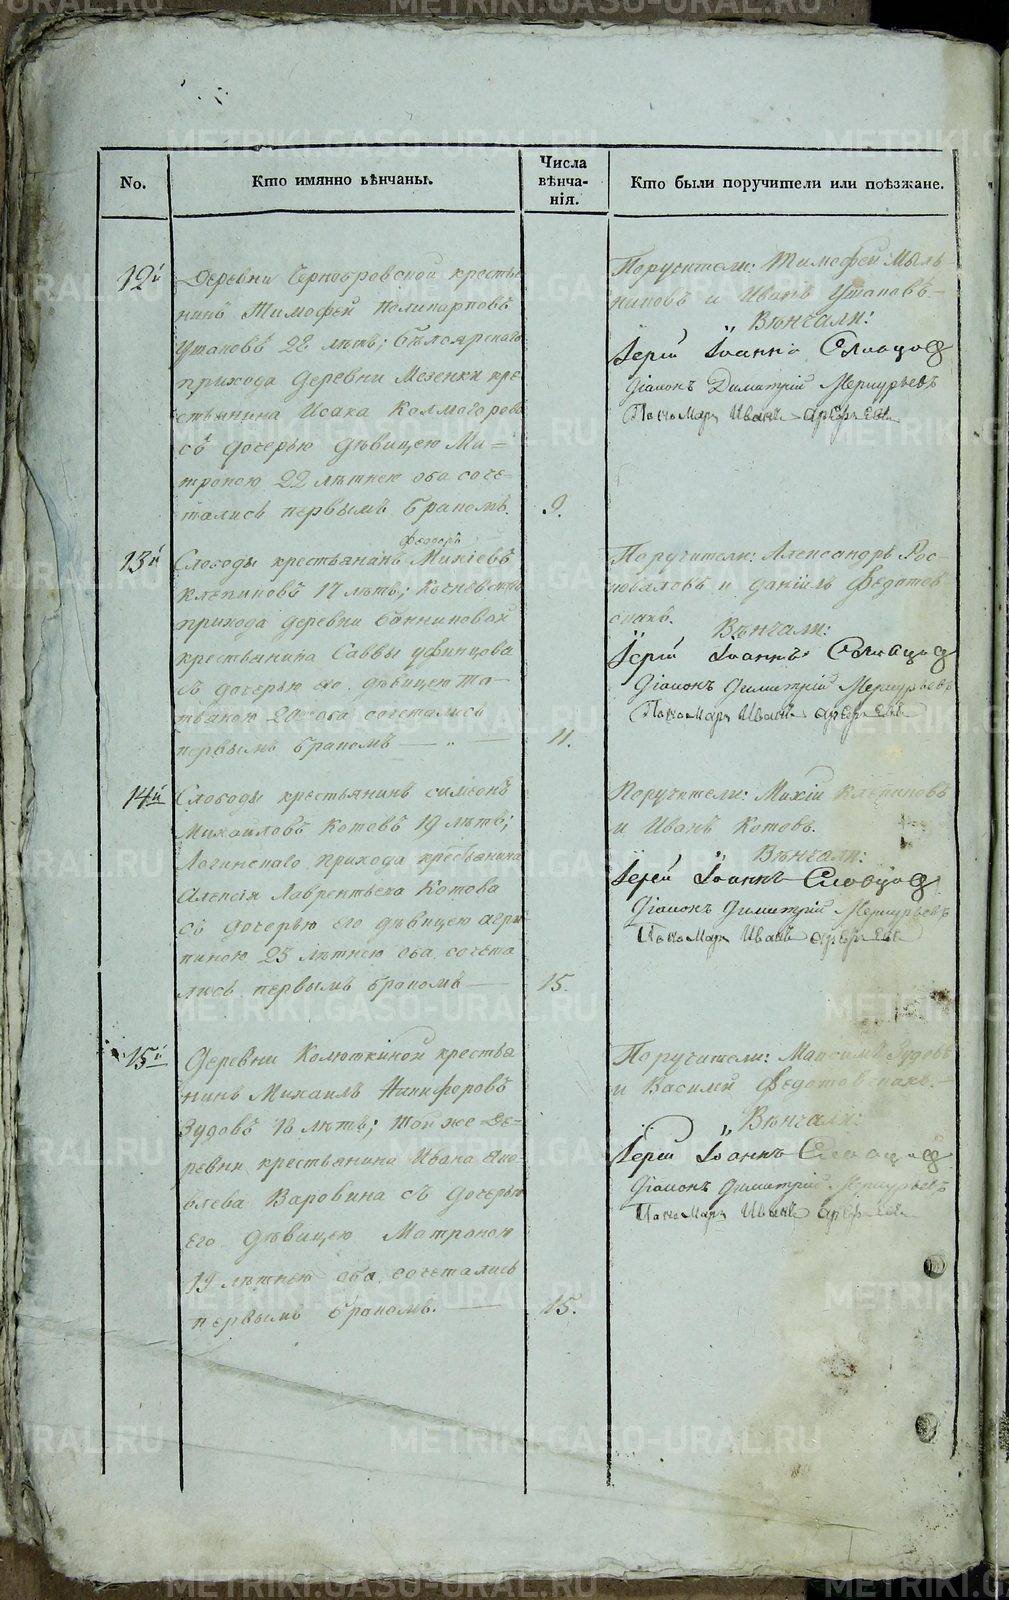 No.
Кто имянно вѣнчаны.
Числа
вѣнча-
нія.
Кто были поручители или поѣзжане.
12й
Деревни Черноbровской крестья
нинъ Тимофей Поликарповъ
Утаповъ 22 лѣтъ; Бѣлоярскаго
прихода деревни Мезенки кре
стьянина Исака Колмогорова
съ дочерью дѣвицею Ма-
троною 22 лѣтнею оба соче-
тались первымъ бракомъ.
9.
Поручители: Тимофей Мыль
никовъ и Иванъ Утаповъ
Вѣнчали:
Іерей Іоаннъ Словцов
Діаконъ Димитрій Меркурьевъ
Пономарь Иванъ
13й
Феодоръ
Слободы крестьянинъ Микіевъ
Клепиковъ 17 лѣтъ;
прихода деревни Банниковой
крестьянина Саввы Уфинцова
съ дочерью его дѣвицею Та-
тьяною 20 оба сочетались
первымъ бракомъ
11.
Поручители: Александръ Рос-
коваловъ и Даніилъ Федотов
скихъ.
Вѣнчали:
Іерей Іоаннъ Словцов
Діаконъ Димитрій Меркурьевъ
Пономарь Иванъ
14й
Слободы крестьянинъ Симеонъ
Михайловъ Котовъ 19 лѣтъ;
Логинскаго прихода крестьянина
Алексія Лаврентьева Котова
съ дочерью его дѣвицею Агри
пиною 23 лѣтнею оба сочета
лись первымъ бракомъ
15.
Поручители: Михій Клепиковъ
и Иванъ Котовъ.
Вѣнчали:
Іерей Іоаннъ Словцов
Діаконъ Димитрій Меркурьевъ
Пономарь Иванъ
15й
Деревни Колюткиной крестья
нинъ Михаилъ Никифоровъ
Зудовъ 18 лѣтъ; той же де-
ревни крестьянина Ивана Яко
влева Варовина съ дочерью
его дѣвицею Матроною
19 лѣтнею оба сочетались
первымъ бракомъ.
15.
Поручители: Максимъ Зудовъ
и Василей Федотовскихъ.
Вѣнчали:
Іерей Іоаннъ Словцов
Діаконъ Димитрій Меркурьевъ
Пономарь Иванъ
METRIKI.GASO-URAL.RU